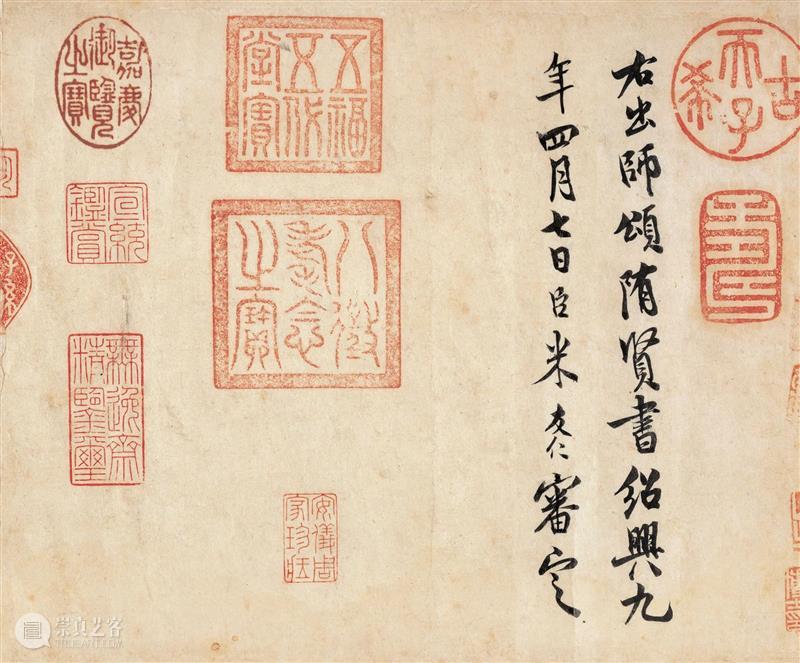 古希天子
壽
右出師頌隋賢書紹興九
年四月七日臣米友仁審定
五福五代堂寶
八徵耄念之寶
安儀周家珍藏
嘉慶御覽之寶
宣統鑑賞
無逸齋精鑑璽
子孫
崇真艺客